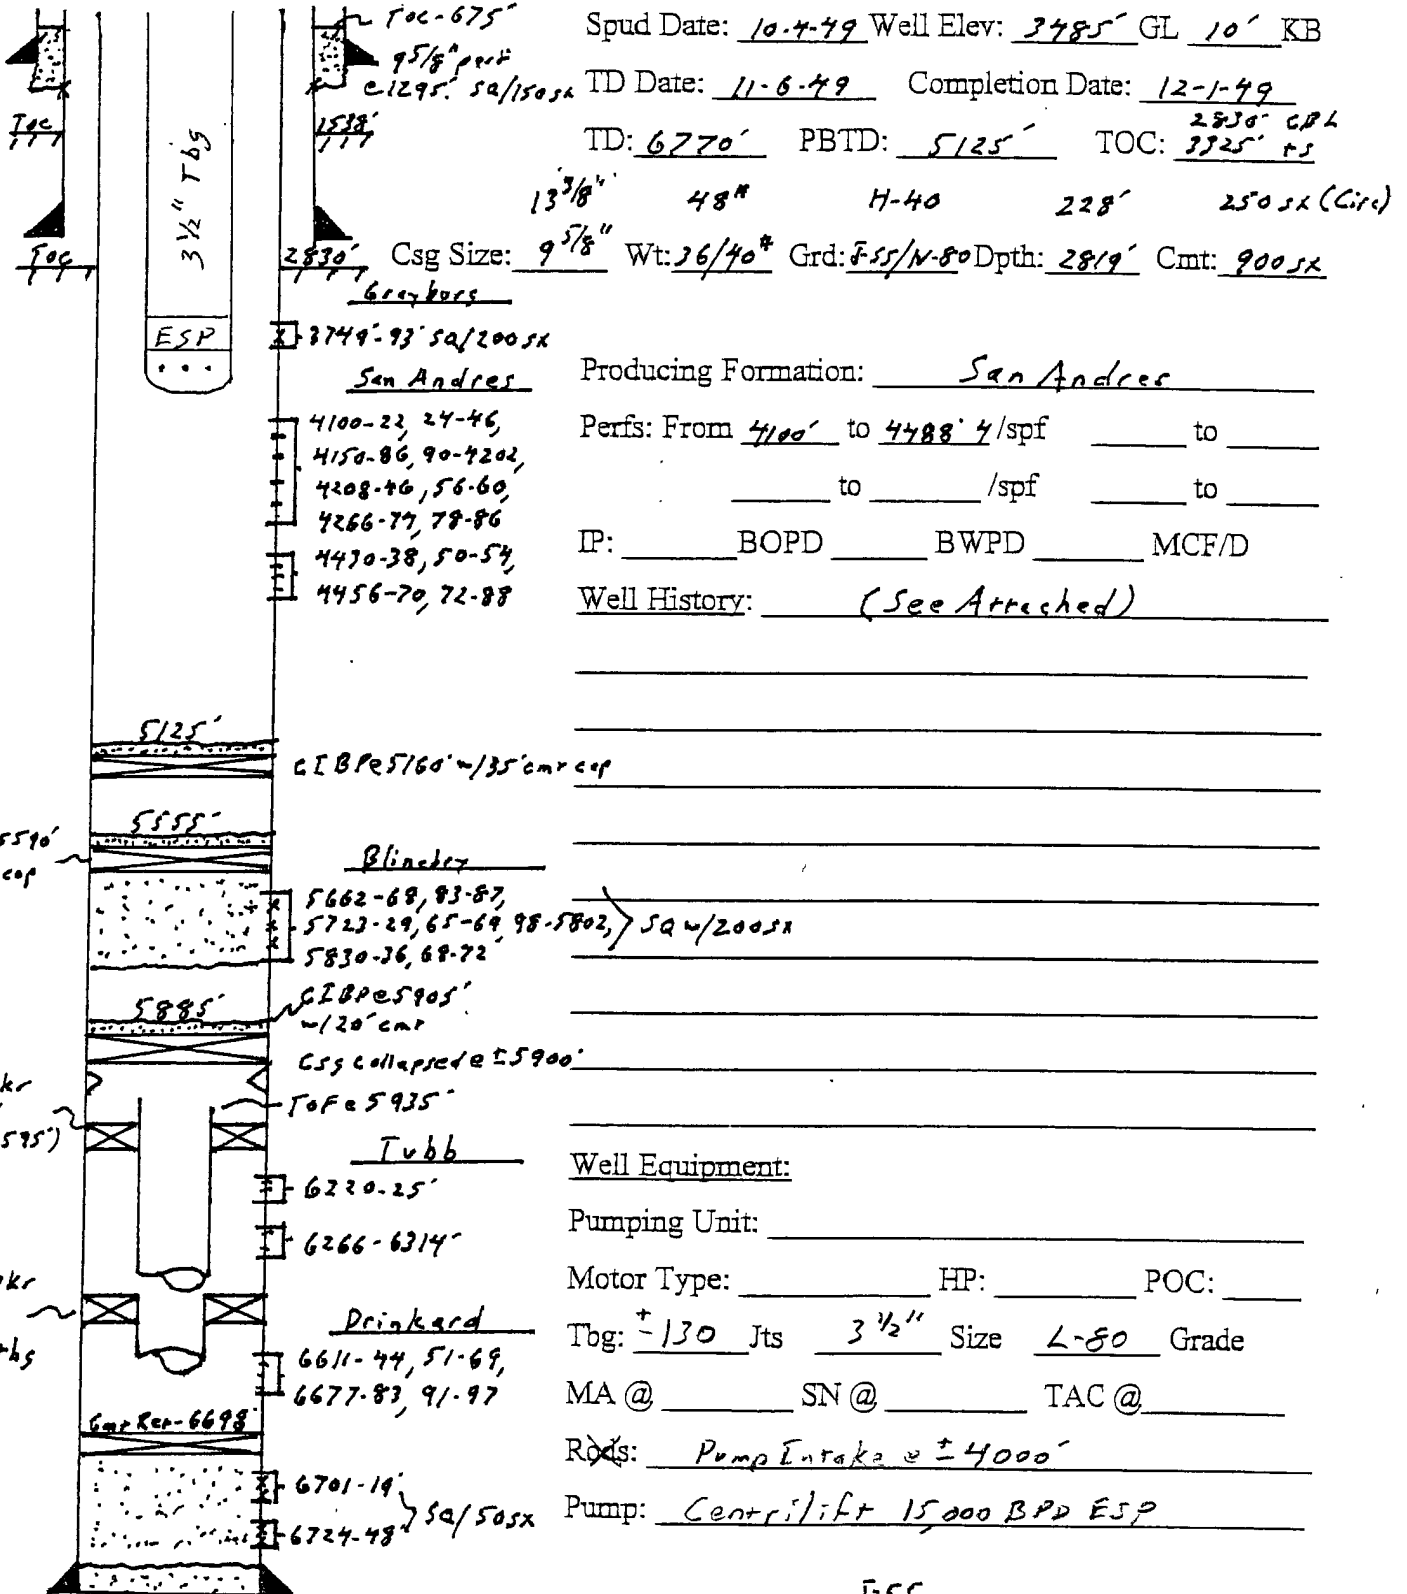 TOC-675'
9 5/8" perf
@1295' SQ/150sx
TOC 1538'
3 1/2" Tbg
TOC 2830'
ESP
Grayburg
3749'-93' SQ/200sx
San Andres
4100-22, 24-46,
4150-86, 90-4202,
4208-46, 56-60,
4266-74, 78-86
4430-38, 50-54,
4456-70, 72-88
5125'
CIBP@5160' w/35' cmt cap
5555'
5590'
cap
Blinebry
5662-68, 83-87,
5723-29, 65-69, 98-5802, SQ w/200sx
5830-36, 68-72'
5885'
CIBP@5905'
w/20' cmt
Csg collapsed @ ±5900'
TOF @ 5935'
kr
595')
Tubb
6220-25'
6266-6314'
kr
tbg
Drinkard
6611-44, 51-69,
6677-83, 91-97
Cmt Ret-6698'
6701-19'
6724-48' SQ/50sx
Spud Date: 10-4-49 Well Elev: 3485' GL 10' KB
TD Date: 11-6-49 Completion Date: 12-1-49
2830' CBL
TD: 6770' PBTD: 5125' TOC: 3325' TS
13 3/8" 48# H-40 228' 250 sx (Circ)
Csg Size: 9 5/8" Wt: 36/40# Grd: J-55/N-80 Dpth: 2819' Cmt: 900sx
Producing Formation: San Andres
Perfs: From 4100' to 4488' 4/spf to
to /spf to
IP: BOPD BWPD MCF/D
Well History: (See Attached)
Well Equipment:
Pumping Unit:
Motor Type: HP: POC:
Tbg: ±130 Jts 3 1/2" Size L-80 Grade
MA @ SN @ TAC @
Rods: Pump Intake @ ±4000'
Pump: Centrilift 15,000 BPD ESP
J-55